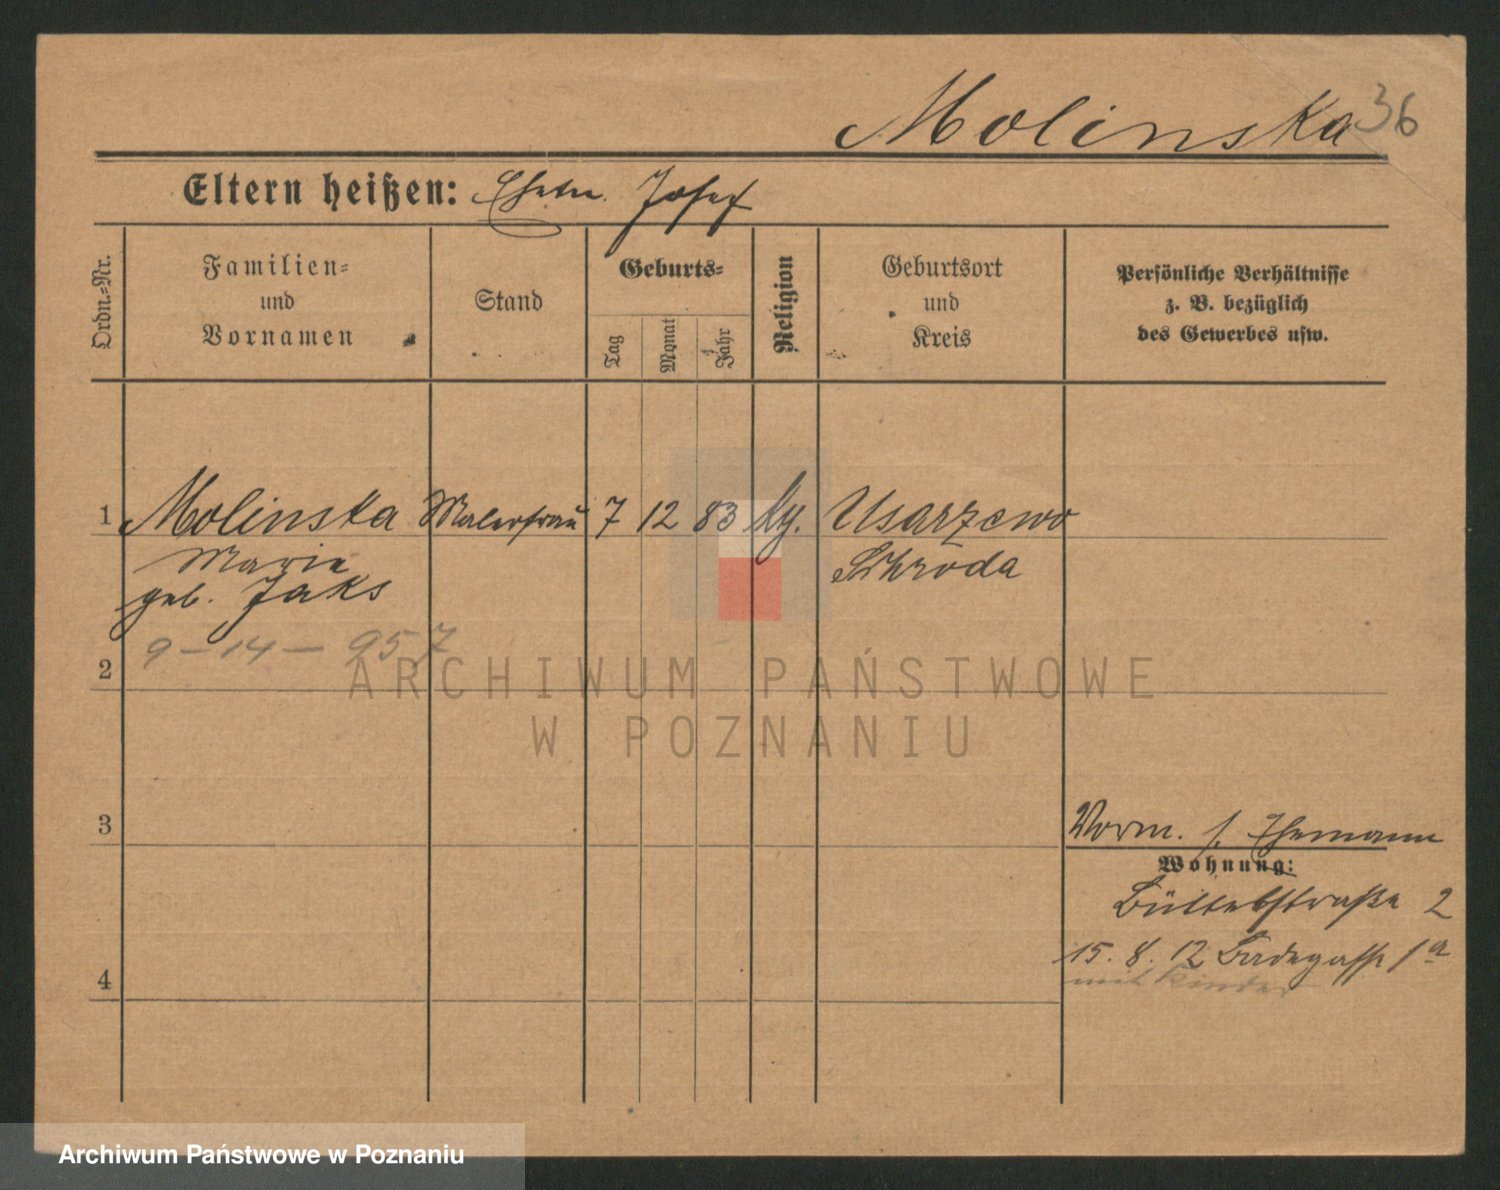 Molinska 36
Eltern heißen: Ehem. Josef
Ordn.-Nr.
Familien-
und
Vornamen
Stand
Geburts-
Tag
Monat
Jahr
Religion
Geburtsort
und
Kreis
Persönliche Verhältnisse
z. B. bezüglich
des Gewerbes usw.
1 Molinska Malerfrau 7 12 83 Usarzewo
Marie Schroda
geb. Jaks
9-14-957
2
ARCHIWUM PAŃSTWOWE
W POZNANIU
3
Vorm. s. Ehemann
Wohnung:
Büttelstraße 2
4
15. 8. 12 Badegasse 1a
mit Kinder
Archiwum Państwowe w Poznaniu